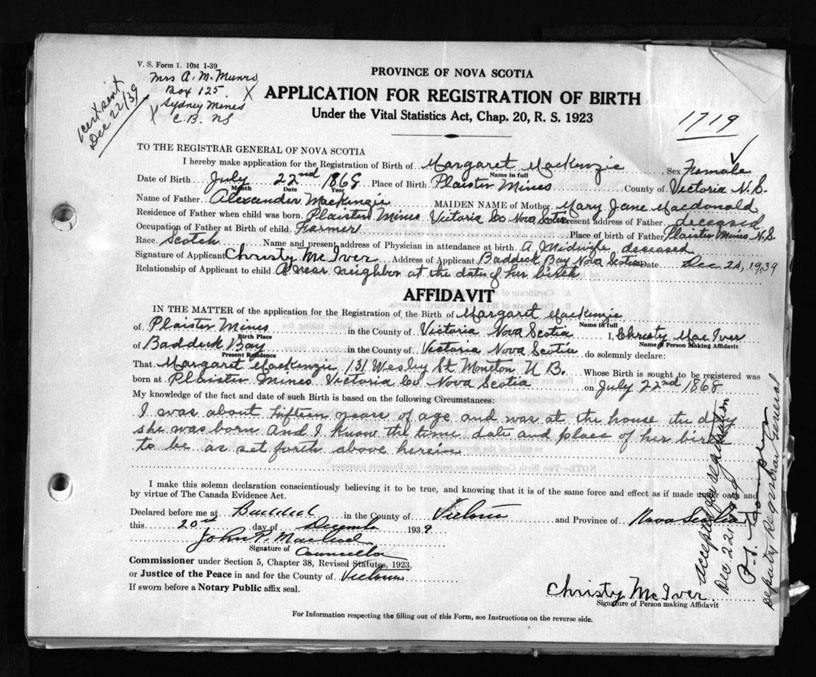 V. S. Form 1. 10M 1-39
Mrs A. M. Munro
Box 125. X
X Sydney Mines
C.B. NS
cert sent
Dec 22/39
PROVINCE OF NOVA SCOTIA
APPLICATION FOR REGISTRATION OF BIRTH
Under the Vital Statistics Act, Chap. 20, R. S. 1923
1719
TO THE REGISTRAR GENERAL OF NOVA SCOTIA
I hereby make application for the Registration of Birth of Margaret MacKenzie, Sex Female
Name in full
Date of Birth July 22nd 1868 Place of Birth Plaister Mines County of Victoria N.S.
Month Date Year
Name of Father Alexander MacKenzie MAIDEN NAME of Mother Mary Jane Macdonald
Residence of Father when child was born. Plaister Mines Victoria Co Nova Scotia Present address of Father deceased
Occupation of Father at Birth of child. Farmer Place of birth of Father Plaister Mines N.S.
Race. Scotch Name and present address of Physician in attendance at birth. A Midwife deceased
Signature of Applicant Christy McIver Address of Applicant Baddeck Bay Nova Scotia Date Dec 20, 1939
Relationship of Applicant to child A near neighbor at the date of her birth
AFFIDAVIT
IN THE MATTER of the application for the Registration of the Birth of Margaret MacKenzie
Name in full
of Plaister Mines in the County of Victoria Nova Scotia I, Christy MacIver
Birth Place Name of Person Making Affidavit
of Baddeck Bay in the County of Victoria Nova Scotia do solemnly declare:
Present Residence
That Margaret MacKenzie, 131 Wesley St. Moncton N B. Whose Birth is sought to be registered was
born at Plaister Mines Victoria Co Nova Scotia on July 22nd 1868
My knowledge of the fact and date of such Birth is based on the following Circumstances:
I was about fifteen years of age and was at the house the day
she was born and I know the time date and place of her birth
to be as set forth above herein
I make this solemn declaration conscientiously believing it to be true, and knowing that it is of the same force and effect as if made under oath and
by virtue of The Canada Evidence Act.
Declared before me at Baddeck in the County of Victoria and Province of Nova Scotia
this 20th day of December 1939
John P. Macleod
Signature of Councillor
Commissioner under Section 5, Chapter 38, Revised Statutes, 1923.
or Justice of the Peace in and for the County of Victoria
If sworn before a Notary Public affix seal.
Christy McIver
Signature of Person making Affidavit
For Information respecting the filling out of this Form, see Instructions on the reverse side.
Accepted for registration
Dec 22
Deputy Registrar General